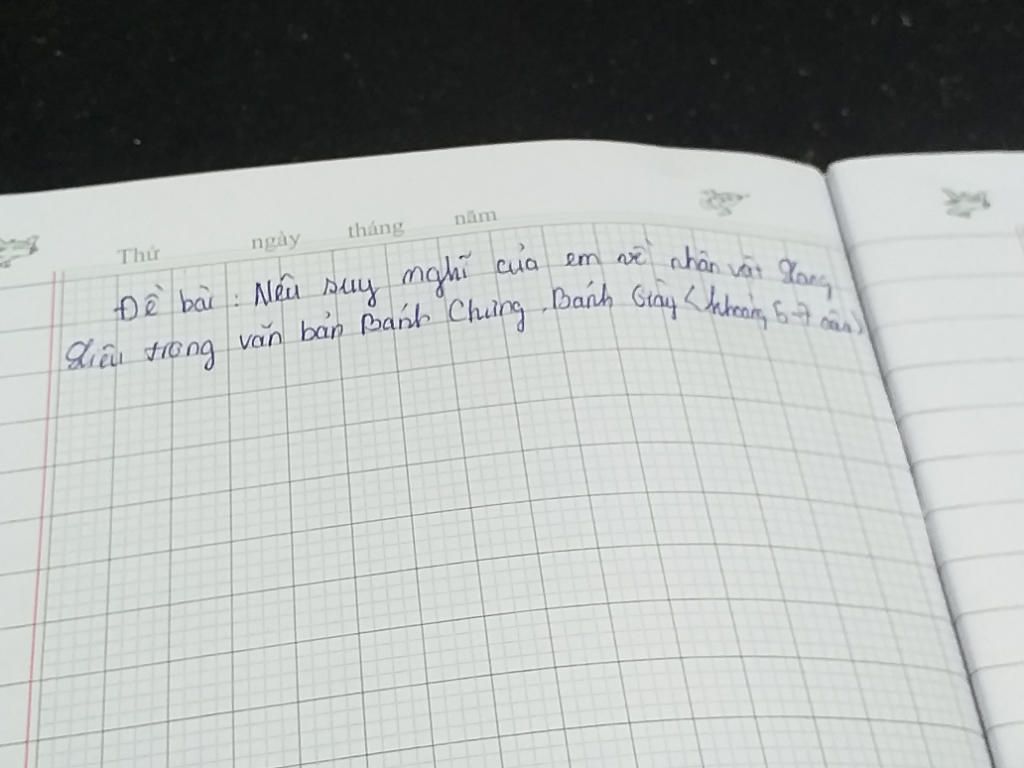 Thứ ngày tháng năm
Đề bài : Nêu suy nghĩ của em về nhân vật Lang
Liêu trong văn bản Bánh Chưng, Bánh Giày (khoảng 5-7 câu)